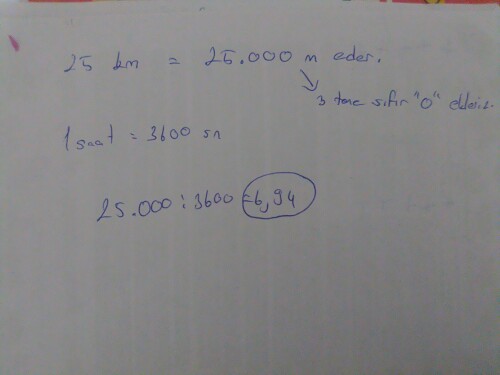 25 km = 25.000 m eder.
3 tane sıfır "0" ekleriz.
1 saat = 3600 sn
25.000 : 3600 = 6,94